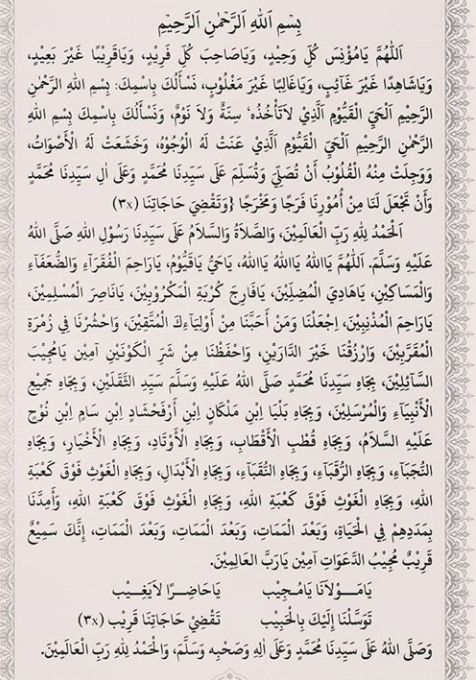 بِسْمِ اللهِ الرَّحْمٰنِ الرَّحِيْمِ
اَللّٰهُمَّ يَامُؤْنِسَ كُلِّ وَحِيْدٍ، وَيَاصَاحِبَ كُلِّ فَرِيْدٍ، وَيَاقَرِيْبًا غَيْرَ بَعِيْدٍ،
وَيَاشَاهِدًا غَيْرَ غَآئِبٍ، وَيَاغَالِبًا غَيْرَ مَغْلُوْبٍ، نَسْأَلُكَ بِاسْمِكَ: بِسْمِ اللهِ الرَّحْمٰنِ
الرَّحِيْمِ اَلْحَيِّ الْقَيُّوْمِ اَلَّذِيْ لَاتَأْخُذُهُ سِنَةٌ وَلَا نَوْمٌ، وَنَسْأَلُكَ بِاسْمِكَ بِسْمِ اللهِ
الرَّحْمٰنِ الرَّحِيْمِ اَلْحَيِّ الْقَيُّوْمِ اَلَّذِيْ عَنَتْ لَهُ الْوُجُوْهُ، وَخَشَعَتْ لَهُ الْأَصْوَاتُ،
وَوَجِلَتْ مِنْهُ الْقُلُوْبُ أَنْ تُصَلِّيَ وَتُسَلِّمَ عَلَى سَيِّدِنَا مُحَمَّدٍ وَعَلَى اٰلِ سَيِّدِنَا مُحَمَّدٍ
وَأَنْ تَجْعَلَ لَنَا مِنْ أُمُوْرِنَا فَرَجًا وَمَخْرَجًا {وَتَقْضِيَ حَاجَاتِنَا (٣x)
اَلْحَمْدُ لِلّٰهِ رَبِّ الْعَالَمِيْنَ، وَالصَّلَاةُ وَالسَّلَامُ عَلَى سَيِّدِنَا رَسُوْلِ اللهِ صَلَّى اللهُ
عَلَيْهِ وَسَلَّمَ. اَللّٰهُمَّ يَااَللهُ يَااَللهُ يَااَللهُ، يَاحَيُّ يَاقَيُّوْمُ، يَارَاحِمَ الْفُقَرَآءِ وَالضُّعَفَآءِ
وَالْمَسَاكِيْنِ، يَاهَادِيَ الْمُضِلِّيْنَ، يَافَارِجَ كُرْبَةِ الْمَكْرُوْبِيْنَ، يَانَاصِرَ الْمُسْلِمِيْنَ،
يَارَاحِمَ الْمُذْنِبِيْنَ، اِجْعَلْنَا وَمَنْ أَحَبَّنَا مِنْ أَوْلِيَآءِكَ الْمُتَّقِيْنَ، وَاحْشُرْنَا فِيْ زُمْرَةِ
الْمُقَرَّبِيْنَ، وَارْزُقْنَا خَيْرَ الدَّارَيْنِ، وَاحْفَظْنَا مِنْ شَرِّ الْكَوْنَيْنِ اٰمِيْن يَامُجِيْبَ
السَّآئِلِيْنَ، بِجَاهِ سَيِّدِنَا مُحَمَّدٍ صَلَّى اللهُ عَلَيْهِ وَسَلَّمَ سَيِّدِ الثَّقَلَيْنِ، وَبِجَاهِ جَمِيْعِ
الْأَنْبِيَآءِ وَالْمُرْسَلِيْنَ، وَبِجَاهِ بَلْيَا ابْنِ مَلْكَانِ اِبْنِ اَرْفَحْشَادِ اِبْنِ سَامِ اِبْنِ نُوْحٍ
عَلَيْهِ السَّلَامُ، وَبِجَاهِ قُطْبِ الْأَقْطَابِ، وَبِجَاهِ الْأَوْتَادِ، وَبِجَاهِ الْأَخْيَارِ، وَبِجَاهِ
النُّجَبَآءِ، وَبِجَاهِ الرُّقَبَآءِ، وَبِجَاهِ النُّقَبَآءِ، وَبِجَاهِ الْأَبْدَالِ، وَبِجَاهِ الْغَوْثِ فَوْقَ كَعْبَةِ
اللهِ، وَبِجَاهِ الْغَوْثِ فَوْقَ كَعْبَةِ اللهِ، وَبِجَاهِ الْغَوْثِ فَوْقَ كَعْبَةِ اللهِ، وَأَمِدَّنَا
بِمَدَدِهِمْ فِي الْحَيَاةِ، وَبَعْدَ الْمَمَاتِ، وَبَعْدَ الْمَمَاتِ، وَبَعْدَ الْمَمَاتِ، إِنَّكَ سَمِيْعٌ
قَرِيْبٌ مُجِيْبُ الدَّعَوَاتِ اٰمِيْن يَارَبَّ الْعَالَمِيْنَ.
يَامَوْلَانَا يَامُجِيْب يَاحَاضِرًا لَايَغِيْب
تَوَسَّلْنَا إِلَيْكَ بِالْحَبِيْب تَقْضِيْ حَاجَاتِنَا قَرِيْب (٣x)
وَصَلَّى اللهُ عَلَى سَيِّدِنَا مُحَمَّدٍ وَعَلَى اٰلِهِ وَصَحْبِهِ وَسَلَّمَ، وَالْحَمْدُ لِلّٰهِ رَبِّ الْعَالَمِيْنَ.